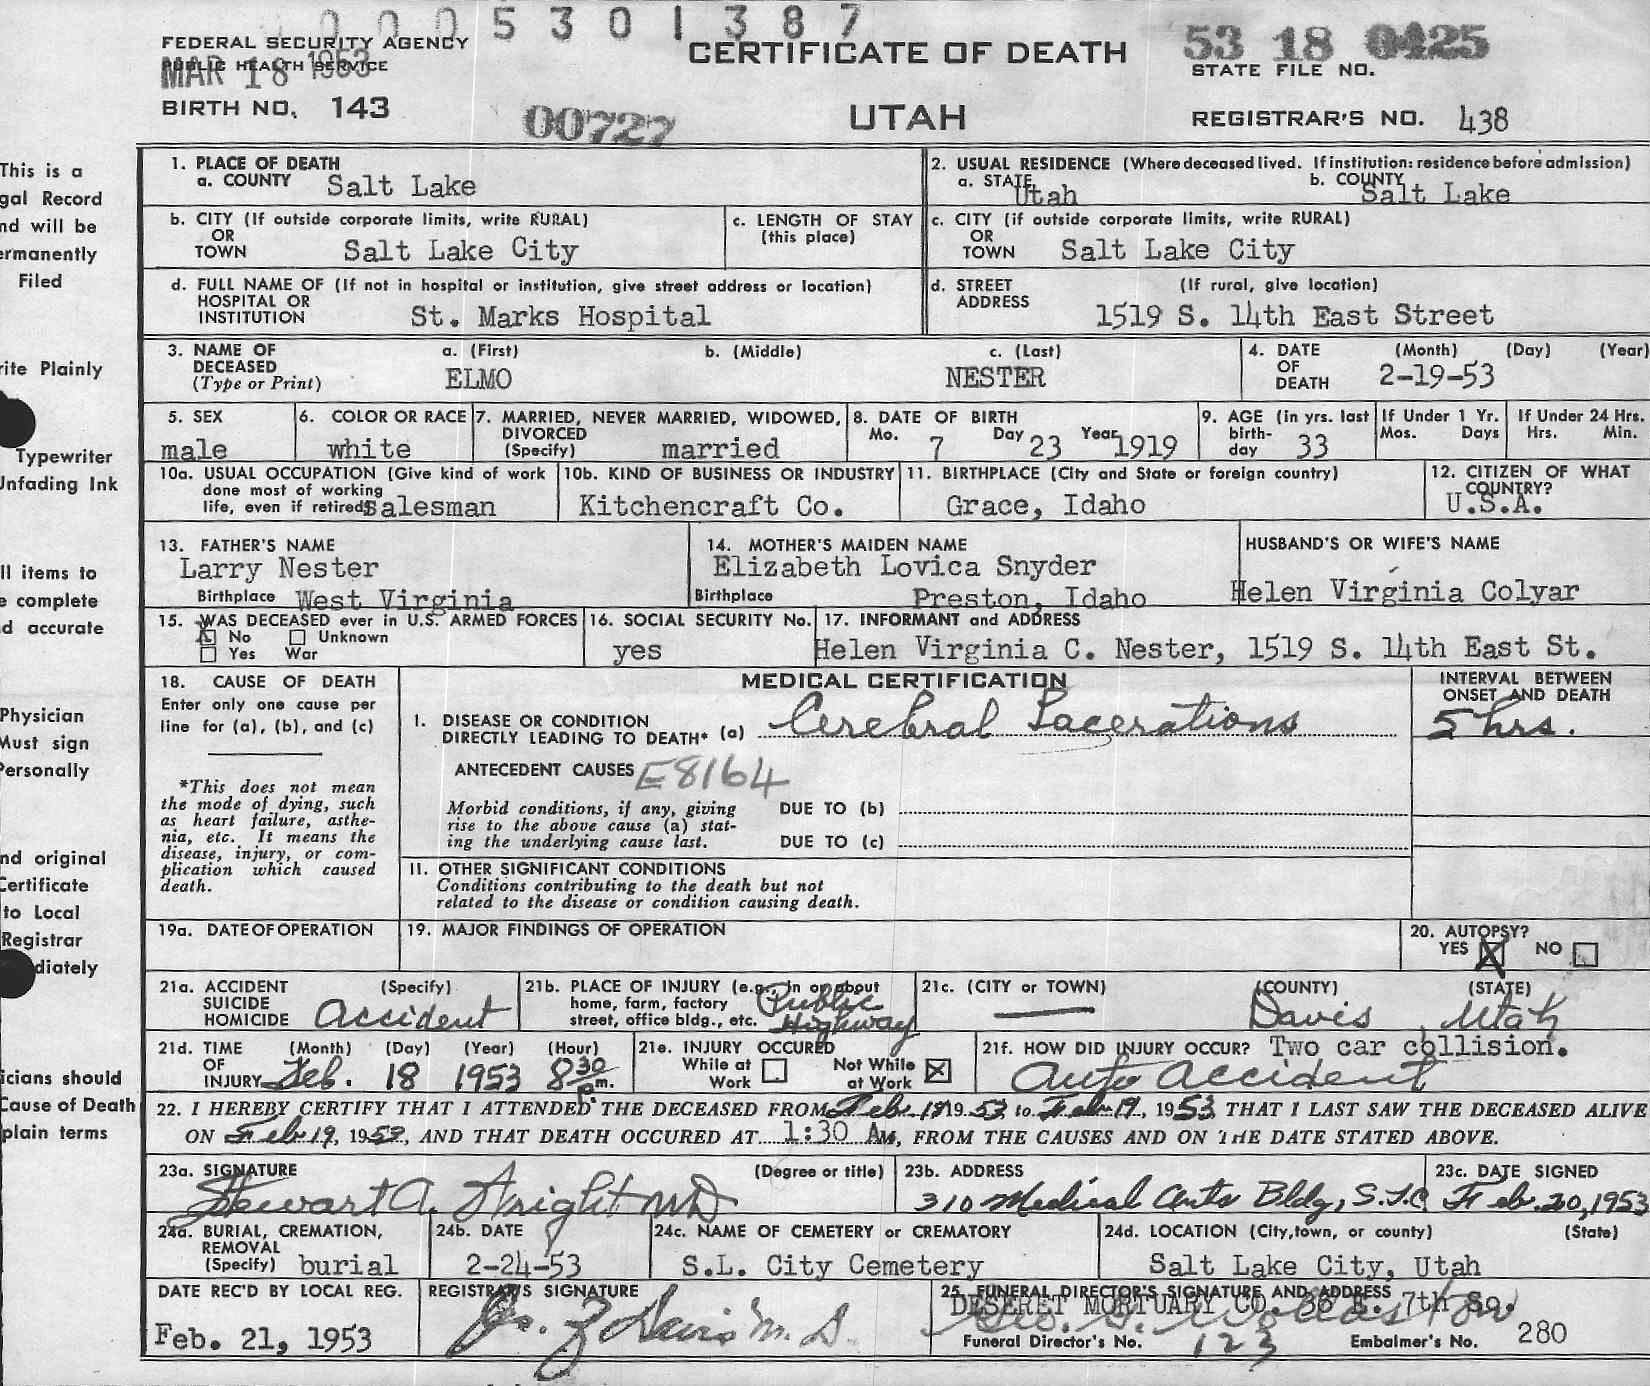 0005301387
FEDERAL SECURITY AGENCY
PUBLIC HEALTH SERVICE
MAR 18 1953
CERTIFICATE OF DEATH
53 18 0425
STATE FILE NO.
BIRTH NO. 143
00727
UTAH
REGISTRAR'S NO. 438
This is a
gal Record
nd will be
ermanently
Filed
rite Plainly
Typewriter
Unfading Ink
ll items to
e complete
d accurate
Physician
Must sign
Personally
nd original
Certificate
to Local
Registrar
diately
icians should
Cause of Death
plain terms
1. PLACE OF DEATH
a. COUNTY Salt Lake
2. USUAL RESIDENCE (Where deceased lived. If institution: residence before admission)
a. STATE Utah b. COUNTY Salt Lake
b. CITY (If outside corporate limits, write RURAL)
OR
TOWN Salt Lake City
c. LENGTH OF STAY
(this place)
c. CITY (if outside corporate limits, write RURAL)
OR
TOWN Salt Lake City
d. FULL NAME OF (If not in hospital or institution, give street address or location)
HOSPITAL OR
INSTITUTION St. Marks Hospital
d. STREET (If rural, give location)
ADDRESS
1519 S. 14th East Street
3. NAME OF DECEASED (Type or Print)
a. (First) b. (Middle) c. (Last)
ELMO NESTER
4. DATE OF DEATH (Month) (Day) (Year)
2-19-53
5. SEX
male
6. COLOR OR RACE
white
7. MARRIED, NEVER MARRIED, WIDOWED,
DIVORCED
(Specify) married
8. DATE OF BIRTH
Mo. 7 Day 23 Year 1919
9. AGE (in yrs. last
birth-
day 33
If Under 1 Yr.
Mos. Days
If Under 24 Hrs.
Hrs. Min.
10a. USUAL OCCUPATION (Give kind of work
done most of working
life, even if retired) Salesman
10b. KIND OF BUSINESS OR INDUSTRY
Kitchencraft Co.
11. BIRTHPLACE (City and State or foreign country)
Grace, Idaho
12. CITIZEN OF WHAT
COUNTRY?
U.S.A.
13. FATHER'S NAME
Larry Nester
Birthplace West Virginia
14. MOTHER'S MAIDEN NAME
Elizabeth Lovica Snyder
Birthplace Preston, Idaho
HUSBAND'S OR WIFE'S NAME
Helen Virginia Colyar
15. WAS DECEASED ever in U.S. ARMED FORCES
X No Unknown
Yes War
16. SOCIAL SECURITY No.
yes
17. INFORMANT and ADDRESS
Helen Virginia C. Nester, 1519 S. 14th East St.
18. CAUSE OF DEATH
Enter only one cause per
line for (a), (b), and (c)
*This does not mean
the mode of dying, such
as heart failure, asthe-
nia, etc. It means the
disease, injury, or com-
plication which caused
death.
MEDICAL CERTIFICATION
INTERVAL BETWEEN
ONSET AND DEATH
I. DISEASE OR CONDITION
DIRECTLY LEADING TO DEATH* (a) Cerebral Lacerations
5 hrs.
ANTECEDENT CAUSES E8164
Morbid conditions, if any, giving
rise to the above cause (a) stat-
ing the underlying cause last.
DUE TO (b)
DUE TO (c)
II. OTHER SIGNIFICANT CONDITIONS
Conditions contributing to the death but not
related to the disease or condition causing death.
19a. DATE OF OPERATION
19. MAJOR FINDINGS OF OPERATION
20. AUTOPSY?
YES X NO
21a. ACCIDENT (Specify)
SUICIDE
HOMICIDE Accident
21b. PLACE OF INJURY (e.g., in or about
home, farm, factory
street, office bldg., etc.
Public
Highway
21c. (CITY or TOWN) (COUNTY) (STATE)
— Davis, Utah
21d. TIME (Month) (Day) (Year) (Hour)
OF
INJURY Feb. 18 1953 8 30 p.m.
21e. INJURY OCCURED
While at Work
Not While at Work X
21f. HOW DID INJURY OCCUR? Two car collision.
Auto accident
22. I HEREBY CERTIFY THAT I ATTENDED THE DECEASED FROM Feb. 19 19 53 to Feb. 19, 1953 THAT I LAST SAW THE DECEASED ALIVE
ON Feb 19, 1953, AND THAT DEATH OCCURED AT 1:30 AM, FROM THE CAUSES AND ON THE DATE STATED ABOVE.
23a. SIGNATURE (Degree or title)
Stewart A. Wright MD
23b. ADDRESS
310 Medical Arts Bldg, S.L.C.
23c. DATE SIGNED
Feb. 20, 1953
24a. BURIAL, CREMATION,
REMOVAL
(Specify) burial
24b. DATE
2-24-53
24c. NAME OF CEMETERY or CREMATORY
S.L. City Cemetery
24d. LOCATION (City, town, or county) (State)
Salt Lake City, Utah
DATE REC'D BY LOCAL REG.
Feb. 21, 1953
REGISTRAR'S SIGNATURE
M.D.
25. FUNERAL DIRECTOR'S SIGNATURE AND ADDRESS
DESERET MORTUARY CO. 36 E. 7th So.
Funeral Director's No. 123 Embalmer's No. 280